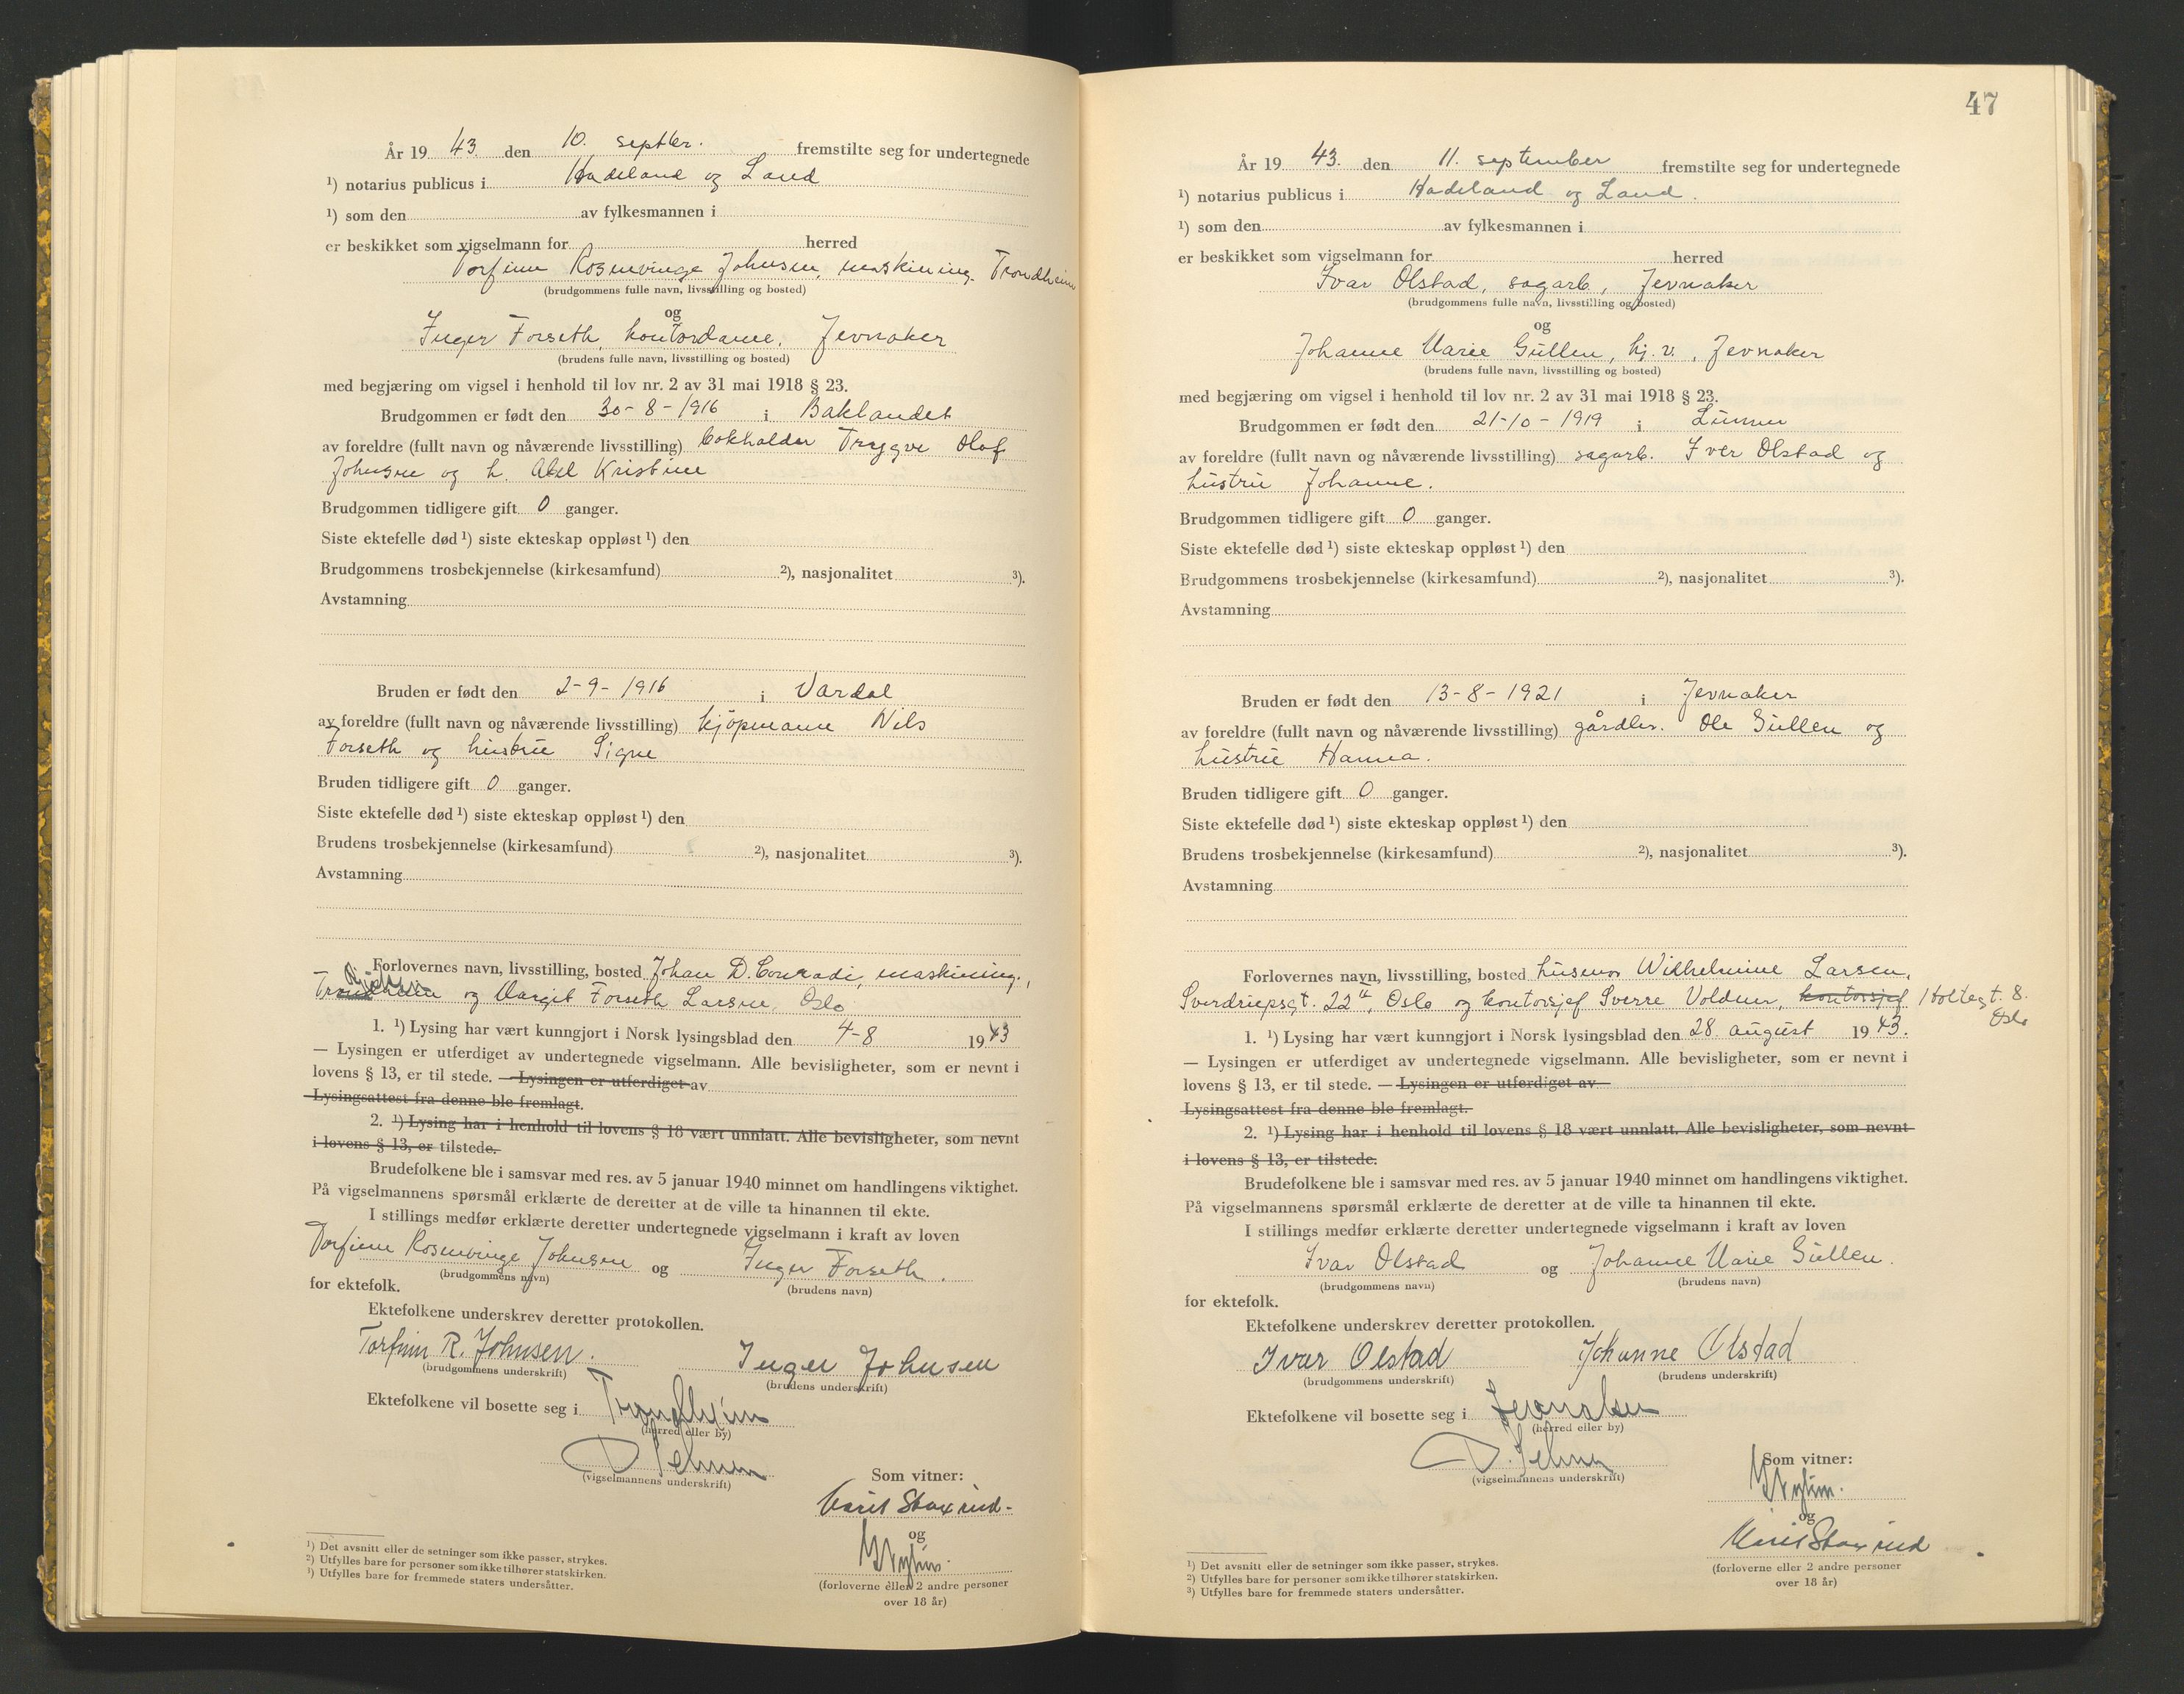 År 19 43. den 10. septbr. fremstilte seg for undertegnede
¹) notarius publicus i Hadeland og Land
¹) som den av fylkesmannen i
er beskikket som vigselmann for herred
Torfinn Rosenvinge Johnsen, maskining. Trondheim
(brudgommens fulle navn, livsstilling og bosted)
og
Inger Forseth, kontordame, Jevnaker
(brudens fulle navn, livsstilling og bosted)
med begjæring om vigsel i henhold til lov nr. 2 av 31 mai 1918 § 23.
Brudgommen er født den 30-8-1916 i Baklandet
av foreldre (fullt navn og nåværende livsstilling) bokholder Trygve Olaf
Johnsen og h. Kristine
Brudgommen tidligere gift 0 ganger.
Siste ektefelle død ¹) siste ekteskap oppløst ¹) den
Brudgommens trosbekjennelse (kirkesamfund) ²), nasjonalitet ³).
Avstamning
Bruden er født den 2-9-1916 i Vardal
av foreldre (fullt navn og nåværende livsstilling) kjöpmann Nils
Forseth og hustru Signe
Bruden tidligere gift 0 ganger.
Siste ektefelle død ¹) siste ekteskap oppløst ¹) den
Brudens trosbekjennelse (kirkesamfund) ²), nasjonalitet ³).
Avstamning
Forlovernes navn, livsstilling, bosted Johan D. Conradi, maskining.,
og Margit Forseth Larsen, Oslo
1. ¹) Lysing har vært kunngjort i Norsk lysingsblad den 4-8 19 43
— Lysingen er utferdiget av undertegnede vigselmann. Alle bevisligheter, som er nevnt i
lovens § 13, er til stede. — Lysingen er utferdiget av
Lysingsattest fra denne ble fremlagt.
2. ¹) Lysing har i henhold til lovens § 18 vært unnlatt. Alle bevisligheter, som nevnt
i lovens § 13, er tilstede.
Brudefolkene ble i samsvar med res. av 5 januar 1940 minnet om handlingens viktighet.
På vigselmannens spørsmål erklærte de deretter at de ville ta hinannen til ekte.
I stillings medfør erklærte deretter undertegnede vigselmann i kraft av loven
Torfinn Rosenvinge Johnsen og Inger Forseth.
(brudgommens navn) (brudens navn)
for ektefolk.
Ektefolkene underskrev deretter protokollen.
Torfinn R. Johnsen. Inger Johnsen
(brudgommens underskrift) (brudens underskrift)
Ektefolkene vil bosette seg i Trondheim
(herred eller by)
(vigselmannens underskrift)
Som vitner:
og
(forloverne eller 2 andre personer
over 18 år)
¹) Det avsnitt eller de setninger som ikke passer, strykes.
²) Utfylles bare for personer som ikke tilhører statskirken.
³) Utfylles bare for fremmede staters undersåtter.
47
År 19 43. den 11. september fremstilte seg for undertegnede
¹) notarius publicus i Hadeland og Land.
¹) som den av fylkesmannen i
er beskikket som vigselmann for herred
Ivar Olstad, sagarb., Jevnaker
(brudgommens fulle navn, livsstilling og bosted)
og
Johanne Marie Gullen, hj. v., Jevnaker
(brudens fulle navn, livsstilling og bosted)
med begjæring om vigsel i henhold til lov nr. 2 av 31 mai 1918 § 23.
Brudgommen er født den 21-10-1919 i Lunner
av foreldre (fullt navn og nåværende livsstilling) sagarb. Iver Olstad og
hustru Johanne.
Brudgommen tidligere gift 0 ganger.
Siste ektefelle død ¹) siste ekteskap oppløst ¹) den
Brudgommens trosbekjennelse (kirkesamfund) ²), nasjonalitet ³).
Avstamning
Bruden er født den 13-8-1921 i Jevnaker
av foreldre (fullt navn og nåværende livsstilling) gårdbr. Ole Gullen og
hustru Hanna.
Bruden tidligere gift 0 ganger.
Siste ektefelle død ¹) siste ekteskap oppløst ¹) den
Brudens trosbekjennelse (kirkesamfund) ²), nasjonalitet ³).
Avstamning
Forlovernes navn, livsstilling, bosted husmor Wilhelmine Larsen,
Sverdrupsgt. 22, Oslo og kontorsjef Sverre Voldmer, kontorsjef Holtegt. 8.
Oslo
1. ¹) Lysing har vært kunngjort i Norsk lysingsblad den 28. august 19 43.
— Lysingen er utferdiget av undertegnede vigselmann. Alle bevisligheter, som er nevnt i
lovens § 13, er til stede. — Lysingen er utferdiget av
Lysingsattest fra denne ble fremlagt.
2. ¹) Lysing har i henhold til lovens § 18 vært unnlatt. Alle bevisligheter, som nevnt
i lovens § 13, er tilstede.
Brudefolkene ble i samsvar med res. av 5 januar 1940 minnet om handlingens viktighet.
På vigselmannens spørsmål erklærte de deretter at de ville ta hinannen til ekte.
I stillings medfør erklærte deretter undertegnede vigselmann i kraft av loven
Ivar Olstad og Johanne Marie Gullen.
(brudgommens navn) (brudens navn)
for ektefolk.
Ektefolkene underskrev deretter protokollen.
Ivar Olstad Johanne Olstad
(brudgommens underskrift) (brudens underskrift)
Ektefolkene vil bosette seg i Jevnaker
(herred eller by)
(vigselmannens underskrift)
Som vitner:
og
(forloverne eller 2 andre personer
over 18 år)
¹) Det avsnitt eller de setninger som ikke passer, strykes.
²) Utfylles bare for personer som ikke tilhører statskirken.
³) Utfylles bare for fremmede staters undersåtter.